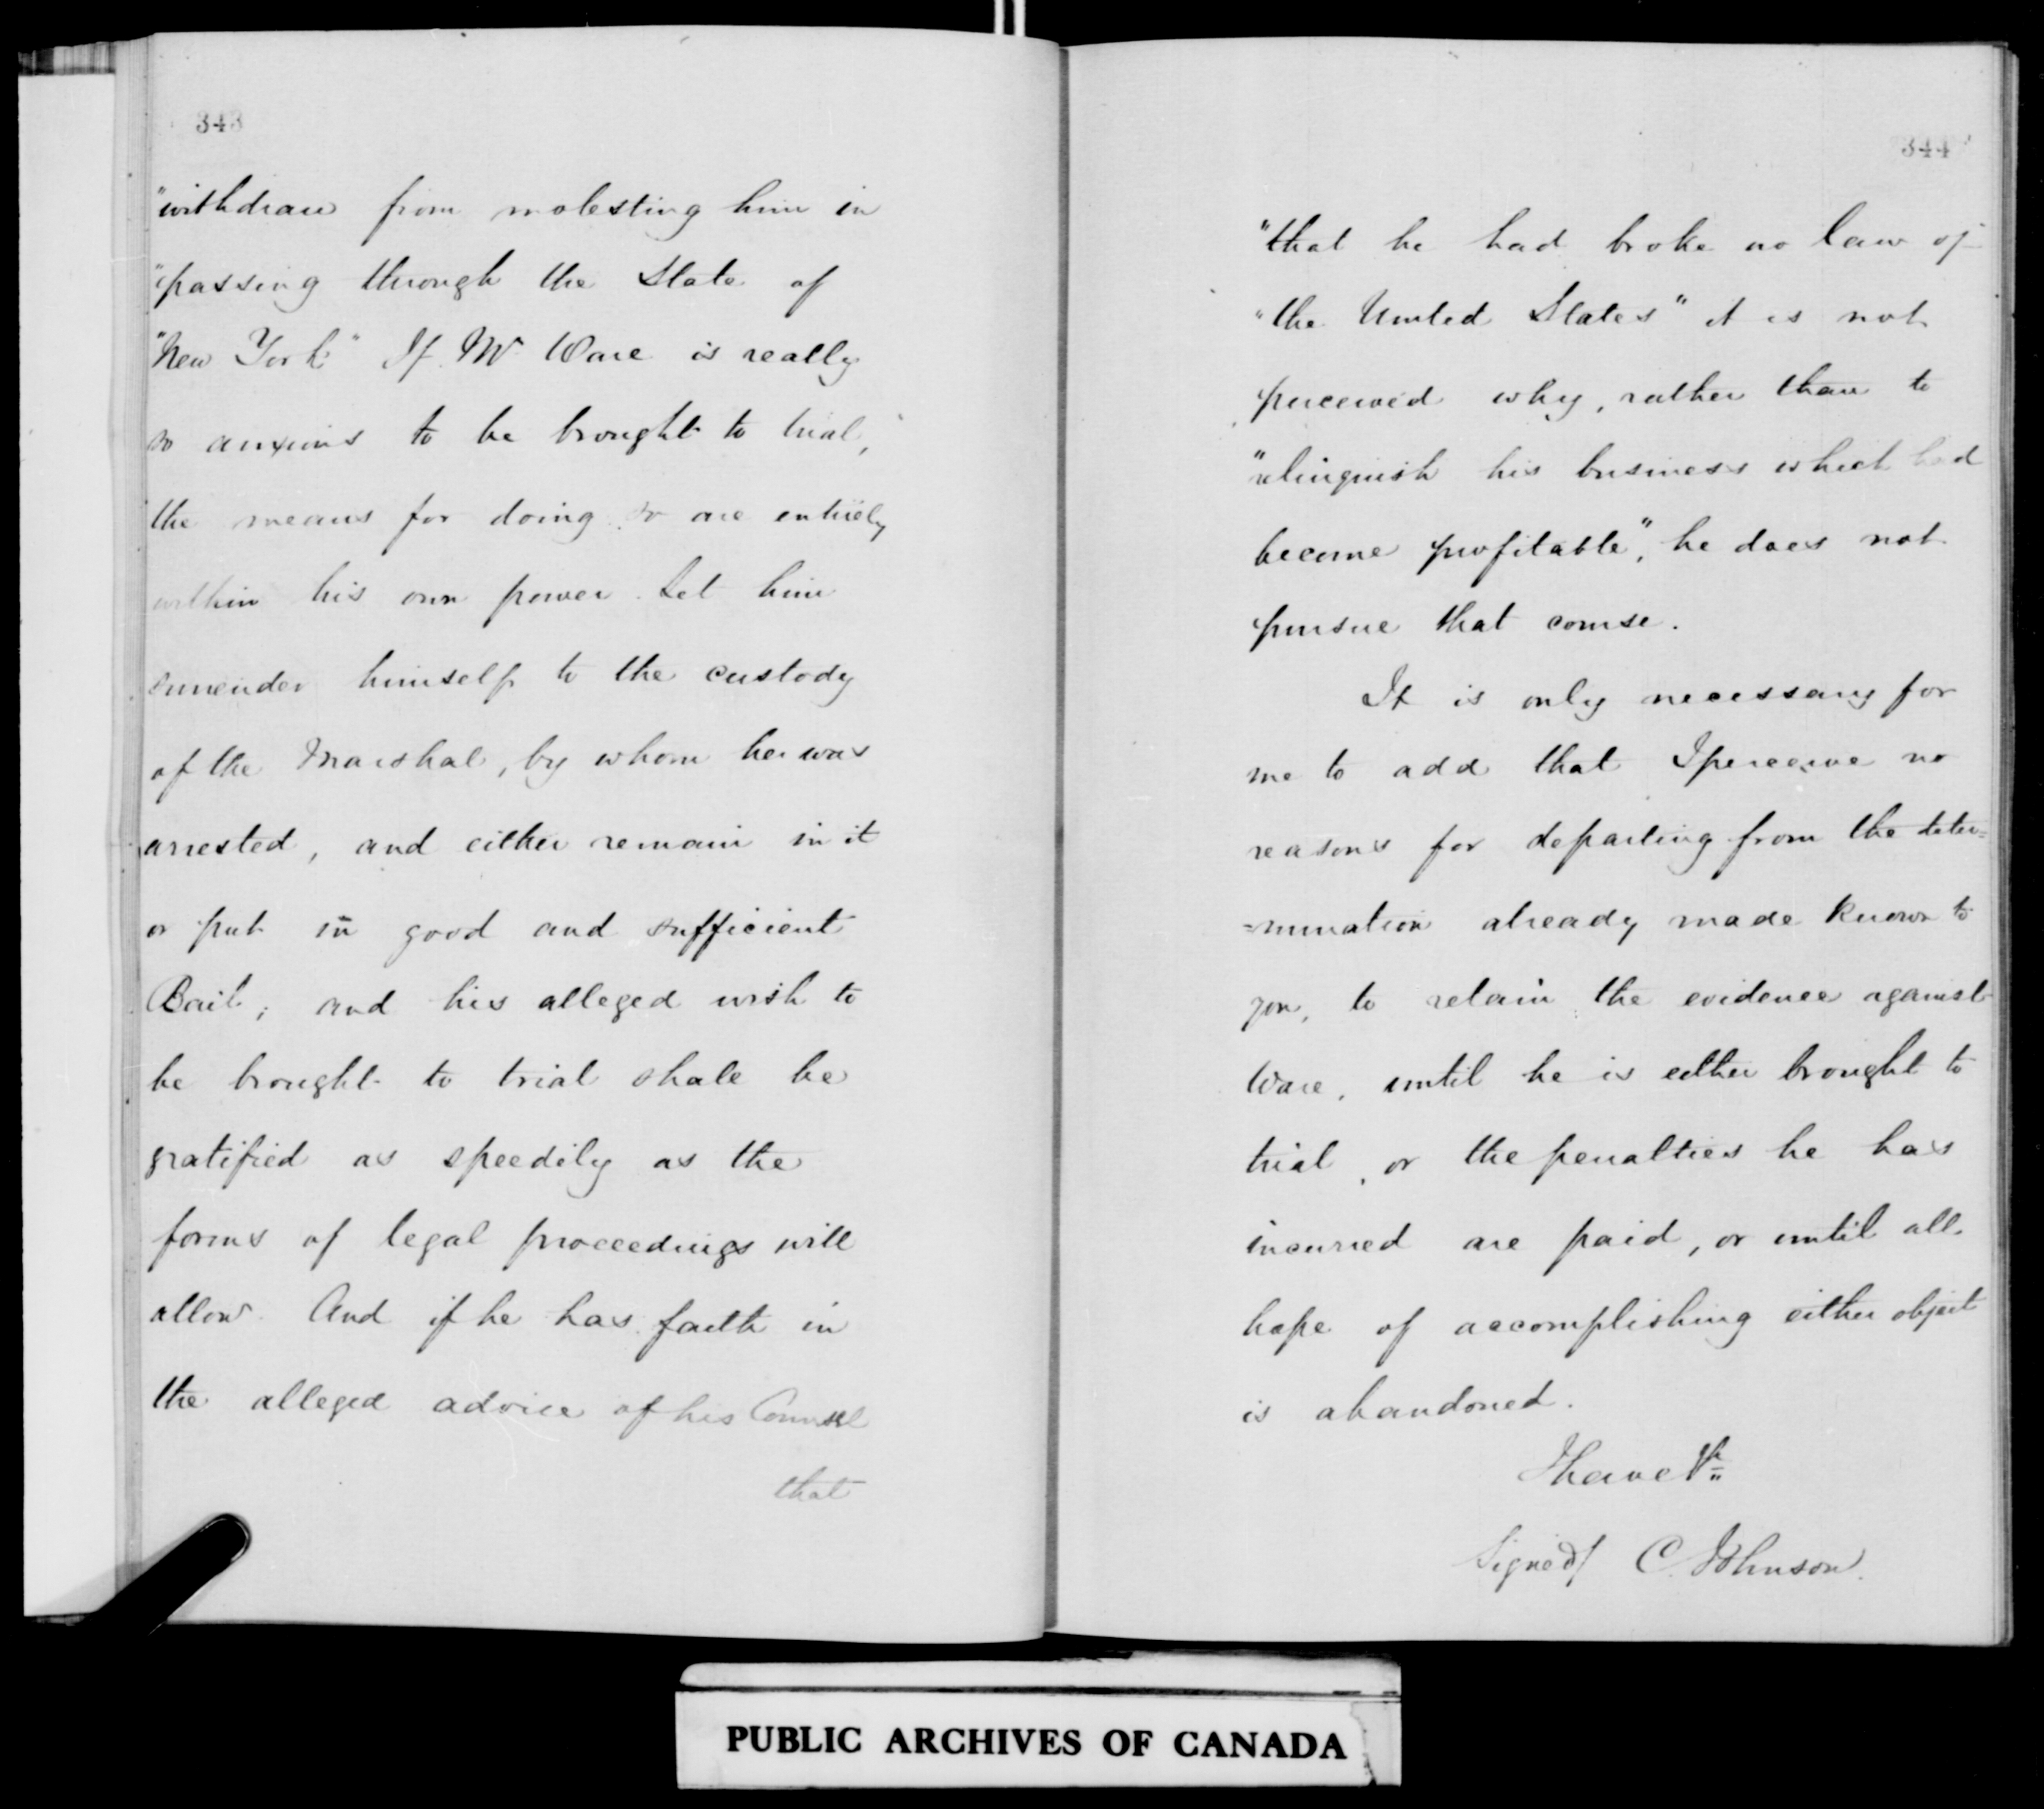 343
"withdraw from molesting him in
"passing through the State of
"New York" If Mr Ware is really
so anxious to be brought to trial,
the means for doing so are entirely
within his own power. Let him
surrender himself to the custody
of the Marshal, by whom he was
arrested, and either remain in it
or put in good and sufficient
Bail; and his alleged wish to
be brought to trial shale be
gratified as speedily as the
forms of legal proceedings will
allow. And if he has faith in
the alleged advice of his Counsel
that
344
"that he had broke no law of
"the United States" it is not
perceived why, rather than to
"relinquish his business which had
become profitable", he does not
pursue that course.
It is only necessary for
me to add that I perceive no
reasons for departing from the deter=
=mination already made known to
you, to retain the evidence against
Ware, until he is either brought to
trial, or the penalties he has
incurred are paid, or until all
hope of accomplishing either object
is abandoned.
I have &c
Signed/ C. Johnson.
PUBLIC ARCHIVES OF CANADA